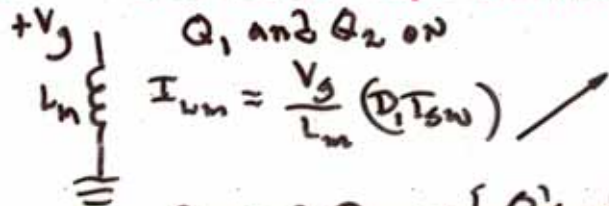 +Vg
Q₁ and Q₂ on
Lm
I_Lm = Vg/Lm (D₁Tsw)